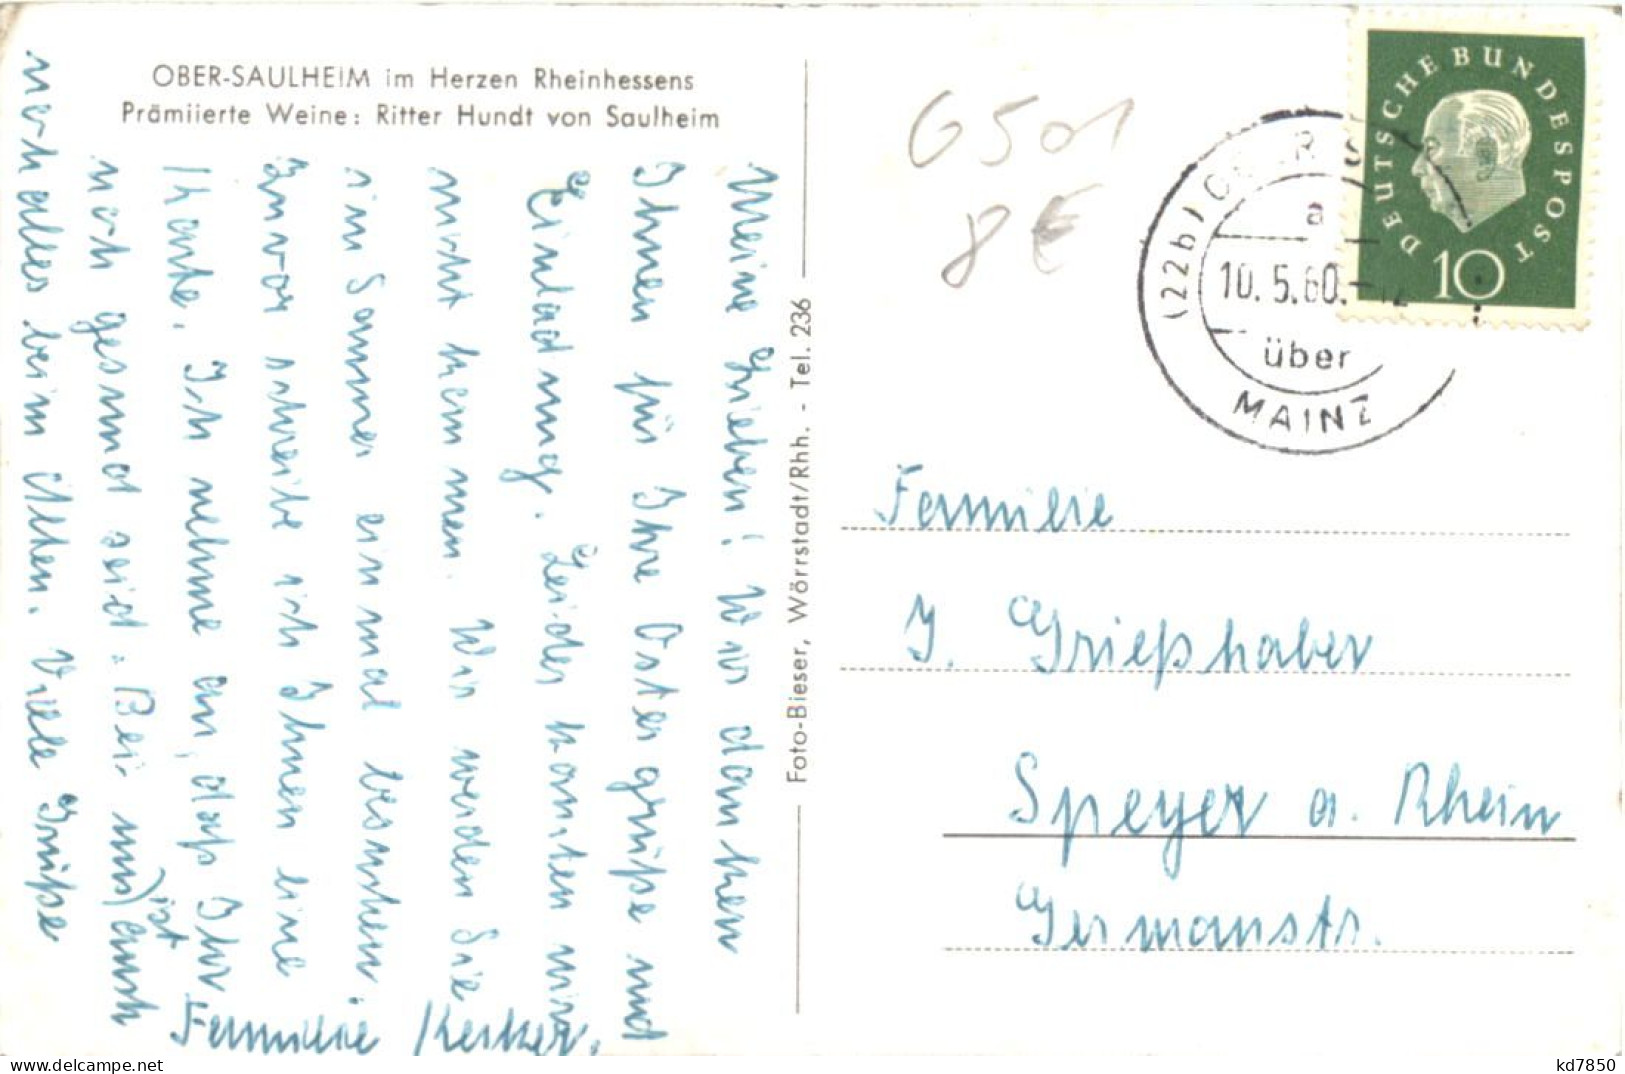 OBER-SAULHEIM im Herzen Rheinhessens
Prämiierte Weine: Ritter Hundt von Saulheim
Meine Lieben! Wir danken
Ihnen für Ihre Ostergrüße und
Einladung. Leider konnten wir
nicht kommen. Wir werden Sie
im Sommer einmal besuchen.
Zuvor schreibe ich Ihnen eine
Karte. Ich nehme an, daß Ihr
noch gesund seid. Bei uns ist auch
noch alles beim Alten. Viele Grüße
Familie
Foto-Bieser, Wörrstadt/Rhh. - Tel. 236
6501
8€
DEUTSCHE BUNDESPOST
10
(22b) OBER S
a
10.5.60.-12
über
MAINZ
Familie
J. Grießhaber
Speyer a. Rhein
Germanstr.
kd7850